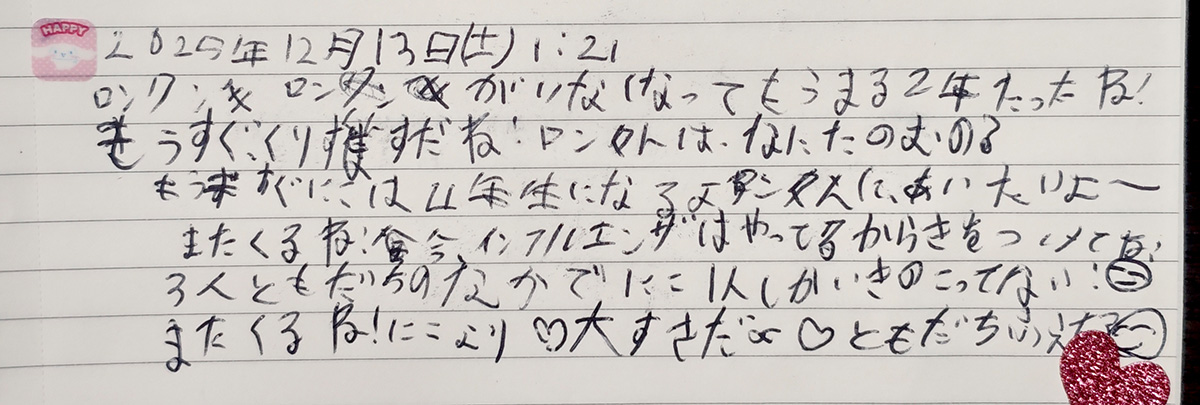 HAPPY
2025年12月13日(土) 1:21
ロンクンを ロン がいなくなってもうまる2年たったね!
もうすぐくりすだね! ロンくんは、なにたのむのる
もうすぐにこは4年生になるよ ロンくんに、あいたいよ〜
またくるね! 今、インフルエンザはやってるからきをつけてね!
3人ともだちのなかでにこ1人しかいきのこってない!
またくるね!にこより♡大すきだよ♡ともだちふえた